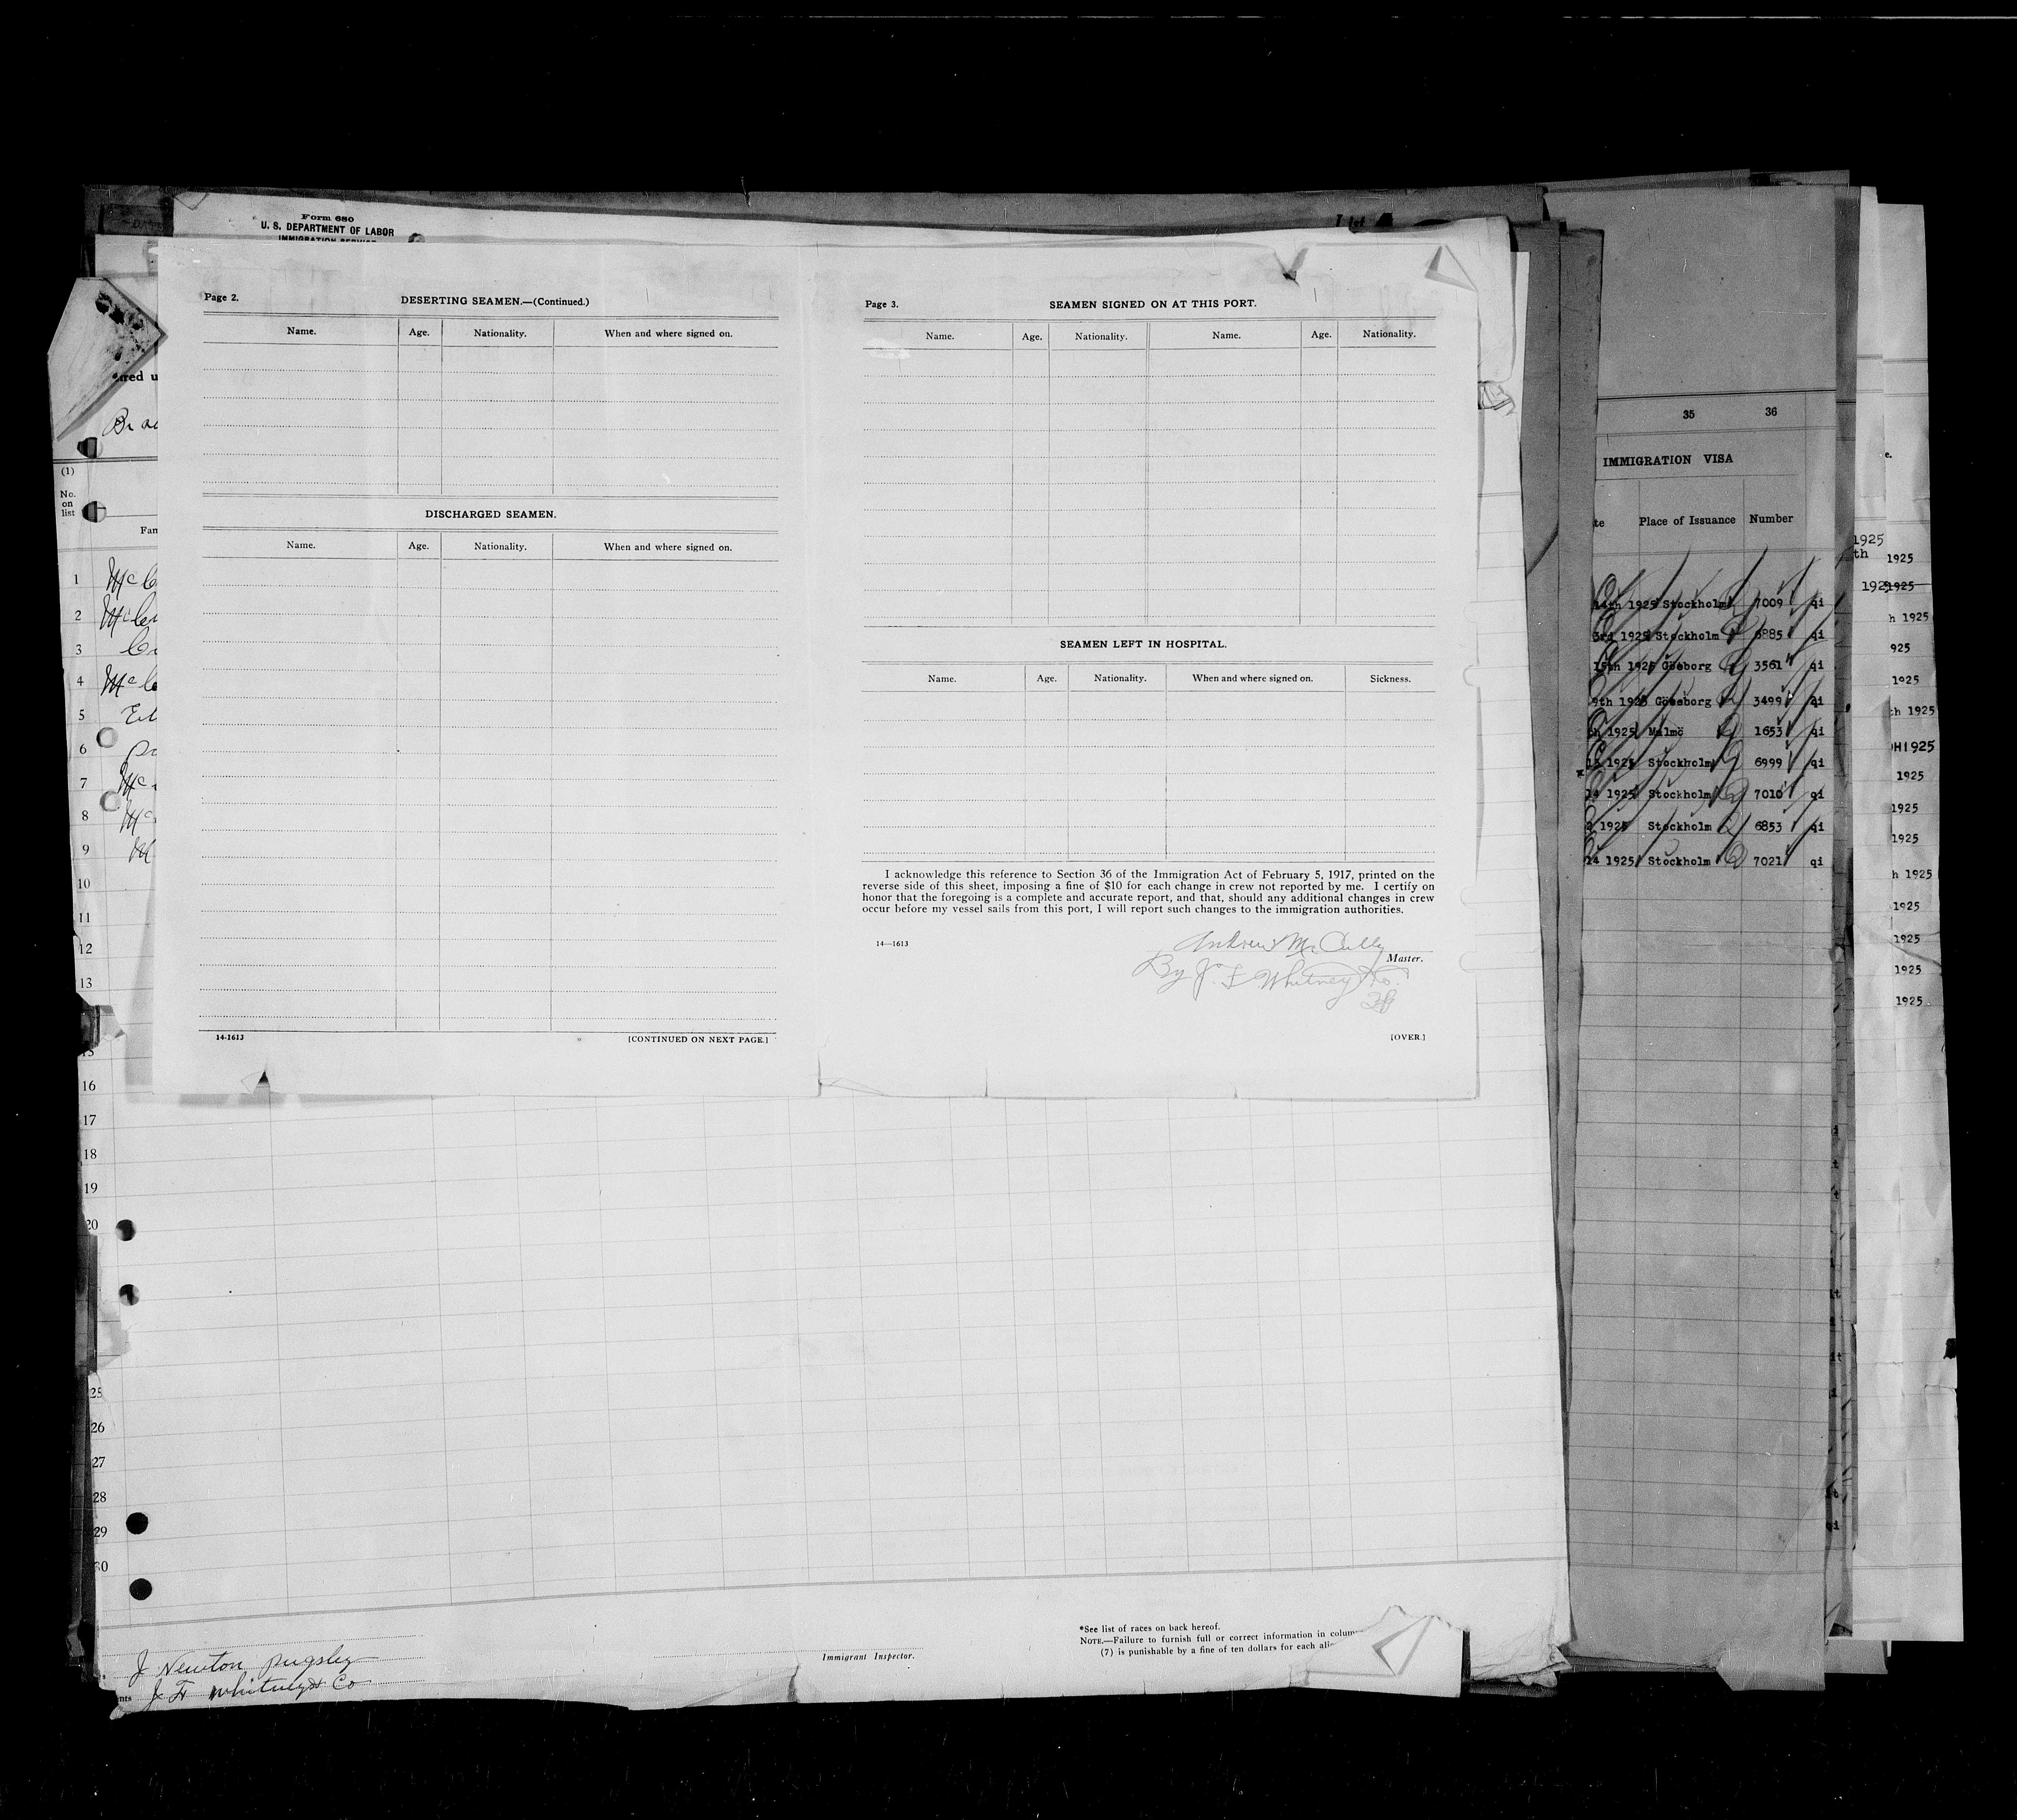 Form 680
U. S. DEPARTMENT OF LABOR
IMMIGRATION SERVICE
Page 2.
DESERTING SEAMEN.—(Continued.)
Name. Age. Nationality. When and where signed on.
DISCHARGED SEAMEN.
Name. Age. Nationality. When and where signed on.
14-1613
[CONTINUED ON NEXT PAGE.]
Page 3.
SEAMEN SIGNED ON AT THIS PORT.
Name. Age. Nationality. Name. Age. Nationality.
SEAMEN LEFT IN HOSPITAL.
Name. Age. Nationality. When and where signed on. Sickness.
I acknowledge this reference to Section 36 of the Immigration Act of February 5, 1917, printed on the
reverse side of this sheet, imposing a fine of $10 for each change in crew not reported by me. I certify on
honor that the foregoing is a complete and accurate report, and that, should any additional changes in crew
occur before my vessel sails from this port, I will report such changes to the immigration authorities.
14—1613
Andrew McCully
Master.
By J. F Whitney & Co.
[OVER.]
(1)
No.
on
list
1
2
3
4
5
6
7
8
9
10
11
12
13
16
17
18
19
20
25
26
27
28
29
30
J Newton Pugsley
J F Whitney & Co
Immigrant Inspector.
*See list of races on back hereof.
NOTE.—Failure to furnish full or correct information in
(7) is punishable by a fine of ten dollars for each
35 36
IMMIGRATION VISA
Place of Issuance Number
14th 1925 Stockholm 7009 qi
3rd 1925 Stockholm 6885 qi
15th 1925 Göteborg 3561 qi
9th 1925 Göteborg 3499 qi
1925 Malmö 1653 qi
1925 Stockholm 6999 qi
14 1925 Stockholm 7010 qi
2 1925 Stockholm 6853 qi
14 1925 Stockholm 7021 qi
1925
th 1925
1925
h 1925
925
1925
th 1925
1925
1925
1925
1925
h 1925
1925
1925
1925
1925